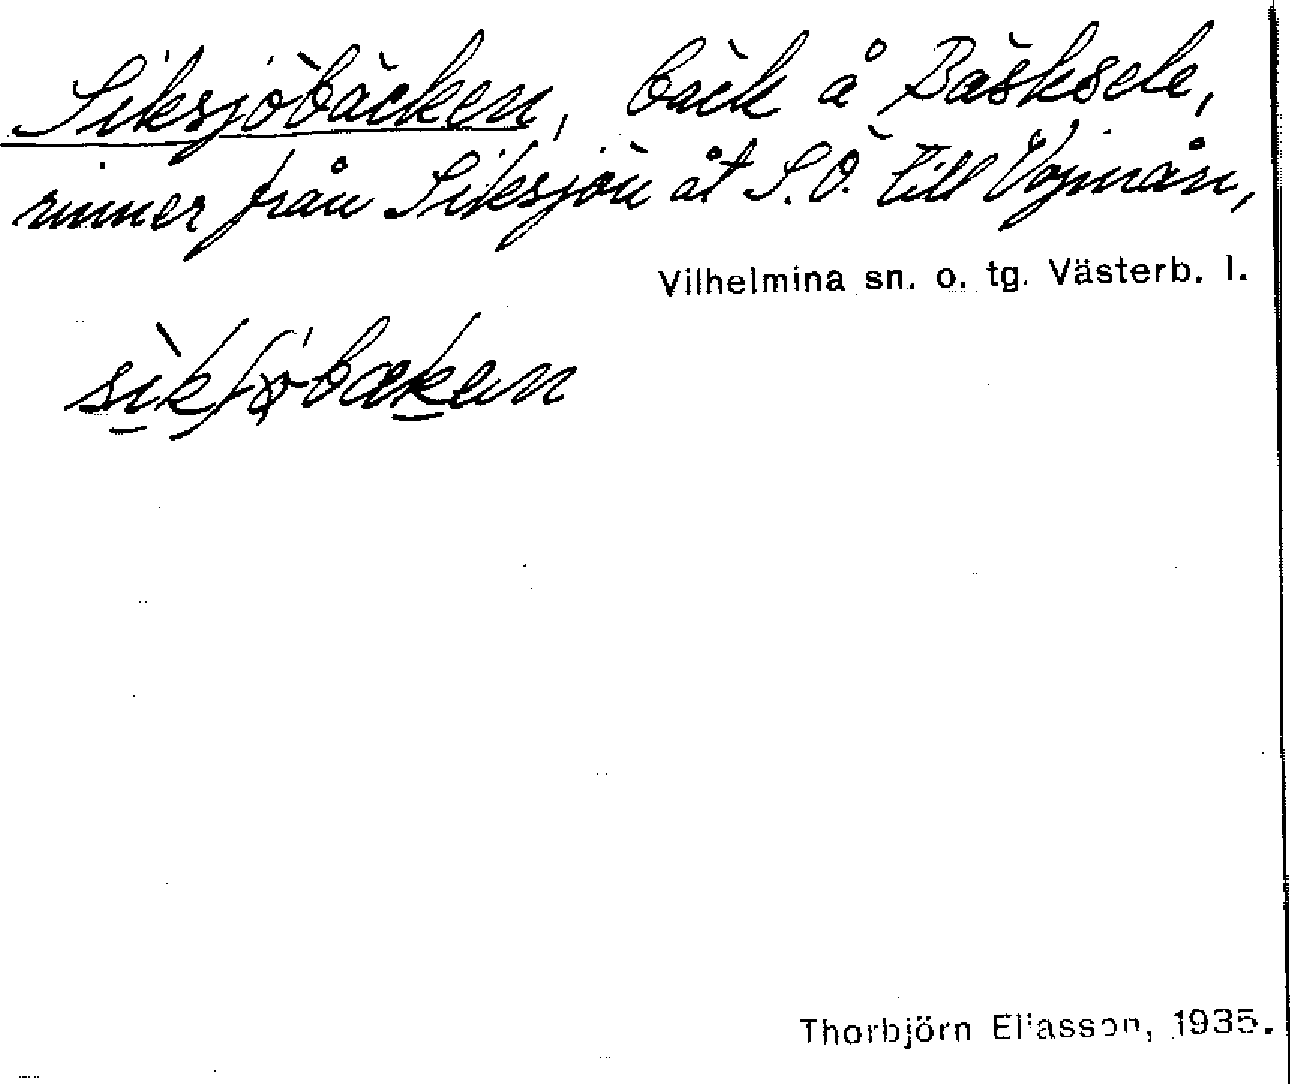 Siksjöbäcken, bäck å Bäsksele,
rinner från Siksjön åt S.Ö. till Vojmån,
Vilhelmina sn. o. tg. Västerb. l.
Thorbjörn Eliasson, 1935.